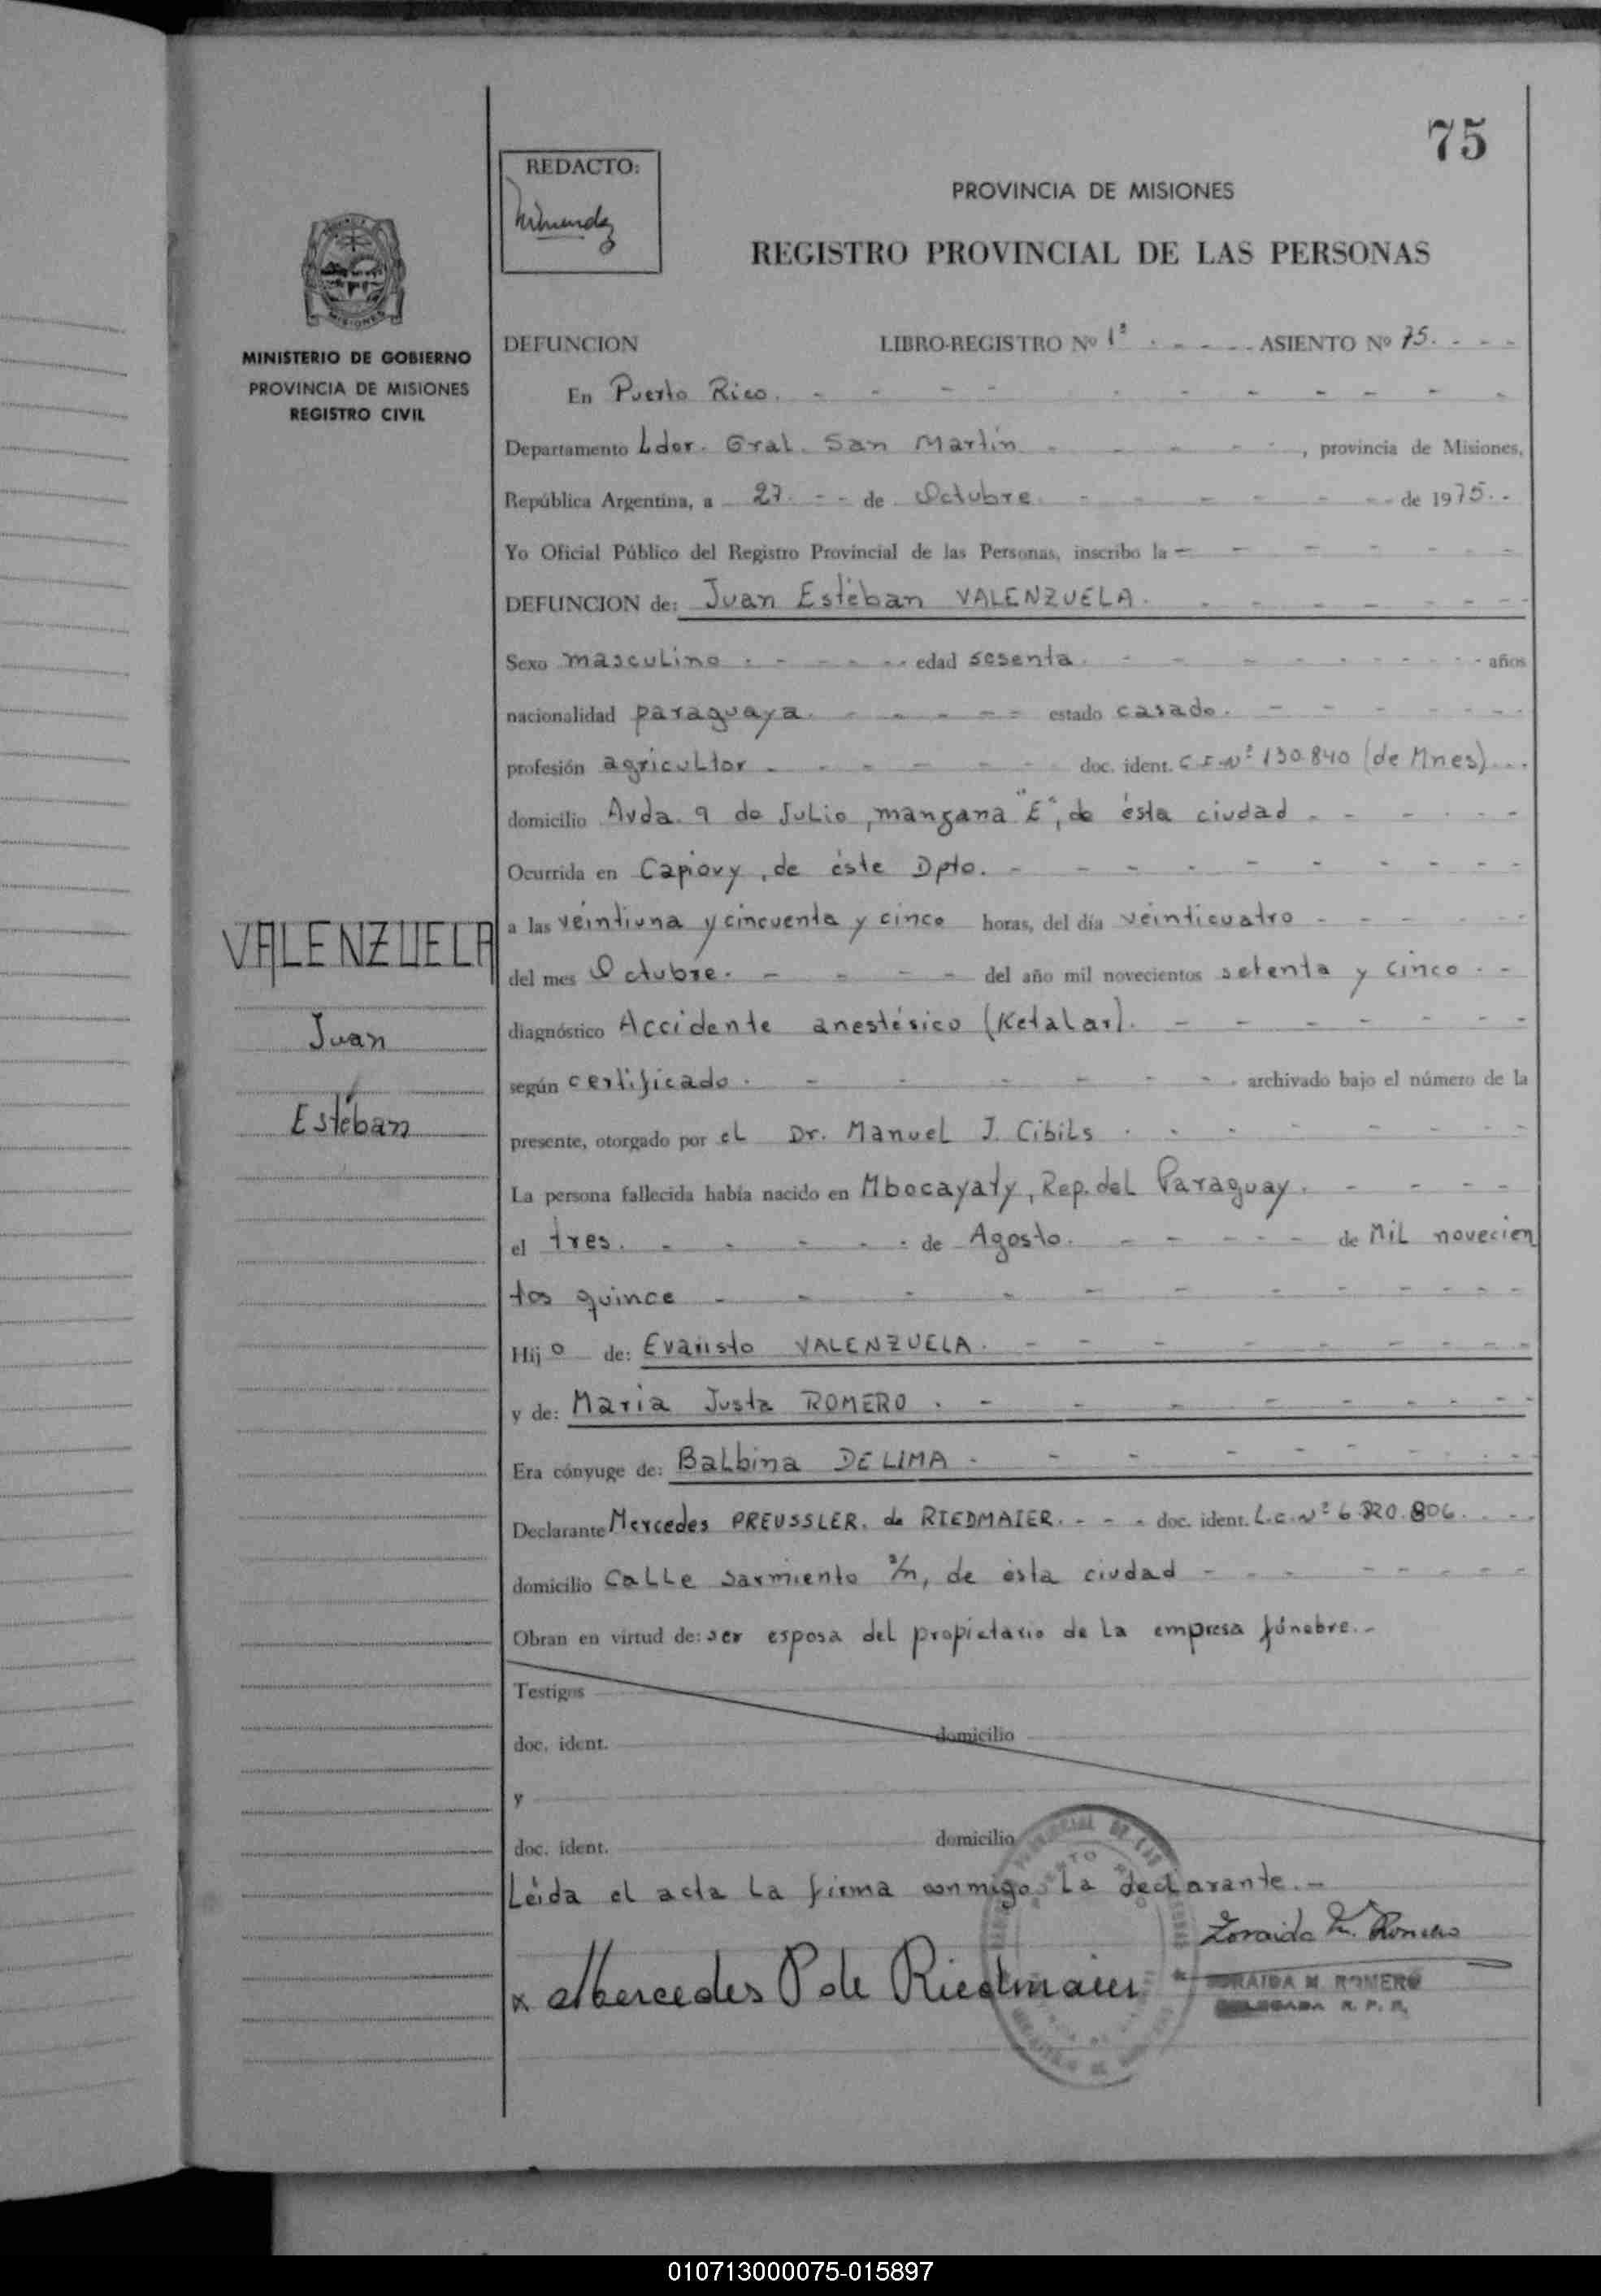 75
REDACTO:
PROVINCIA DE MISIONES
REGISTRO PROVINCIAL DE LAS PERSONAS
MISIONES
MINISTERIO DE GOBIERNO
PROVINCIA DE MISIONES
REGISTRO CIVIL
DEFUNCION LIBRO-REGISTRO Nº 1º - - - - ASIENTO Nº 75. - - -
En Puerto Rico. - - - - - - - - - -
Departamento Ldor. Gral. San Martín - - - - - , provincia de Misiones,
República Argentina, a 27. - - de Octubre. - - - - - - de 1975. -
Yo Oficial Público del Registro Provincial de las Personas, inscribo la - - - - - -
DEFUNCION de: Juan Estéban VALENZUELA. - - - - - - -
Sexo masculino. - - - - edad sesenta. - - - - - - - años
nacionalidad paraguaya. - - - - - estado casado. - - - - - -
profesión agricultor - - - - - - doc. ident. C.I.Nº 130.840 (de Mnes) - - -
domicilio Avda. 9 de Julio, manzana "E", de ésta ciudad - - - - - -
Ocurrida en Capiovy, de éste Dpto. - - - - - - - - -
a las veintiuna y cincuenta y cinco horas, del día veinticuatro - - - - -
del mes Octubre. - - - - del año mil novecientos setenta y cinco - -
diagnóstico Accidente anestésico (Ketalar). - - - - - - -
según certificado. - - - - - - - archivado bajo el número de la
presente, otorgado por el Dr. Manuel J. Cibils - - - - - - -
La persona fallecida había nacido en Mbocayaty, Rep. del Paraguay. - - - -
el tres. - - - - - de Agosto. - - - - - de Mil novecien
tos quince - - - - - - - - - - -
Hijo de: Evaristo VALENZUELA. - - - - - - -
y de: Maria Justa ROMERO. - - - - - - - -
Era cónyuge de: Balbina DE LIMA - - - - - - - -
Declarante Mercedes PREUSSLER. de RIEDMAIER. - - - doc. ident. L.C.Nº 6.820.806. - - -
domicilio Calle Sarmiento s/n, de ésta ciudad - - - - - - - -
Obran en virtud de: ser esposa del propietario de la empresa fúnebre. -
Testigos
doc. ident. domicilio
y
doc. ident. domicilio
Leída el acta la firma conmigo la declarante. -
x Mercedes P de Riedmaier
Zoraida M. Romero
ZORAIDA M. ROMERO
DELEGADA R. P. P.
VALENZUELA
Juan
Estéban
010713000075-015897